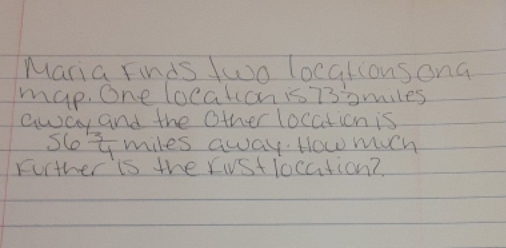 Maria finds two locations on a
map. One location is 73 1/2 miles
away and the other location is
56 3/4 miles away. How much
further is the first location?